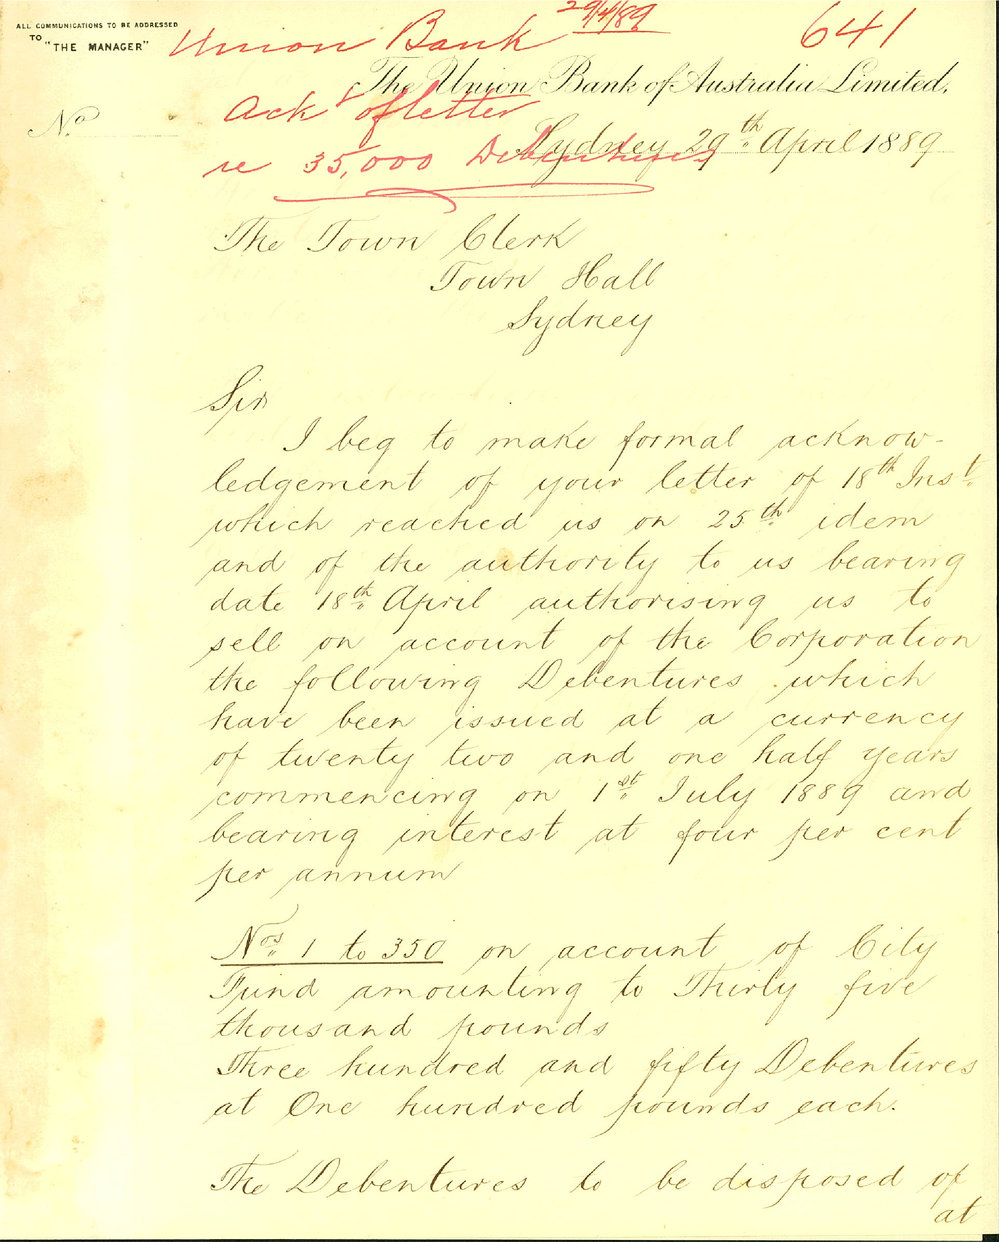 ALL COMMUNICATIONS TO BE ADDRESSED
TO "THE MANAGER"
Union Bank 29/4/89 641
The Union Bank of Australia Limited.
Ack of letter
No
Sydney 29th April 1889
re 35,000 Debentures
The Town Clerk
Town Hall
Sydney
Sir
I beg to make formal acknow-
ledgement of your letter of 18th Inst.
which reached us on 25th idem
and of the authority to us bearing
date 18th April authorising us to
sell on account of the Corporation
the following Debentures which
have been issued at a currency
of twenty two and one half years
commencing on 1st July 1889 and
bearing interest at four per cent
per annum
Nos 1 to 350 on account of City
Fund amounting to Thirty five
thousand pounds
Three hundred and fifty Debentures
at One hundred pounds each.
The Debentures to be disposed of
at